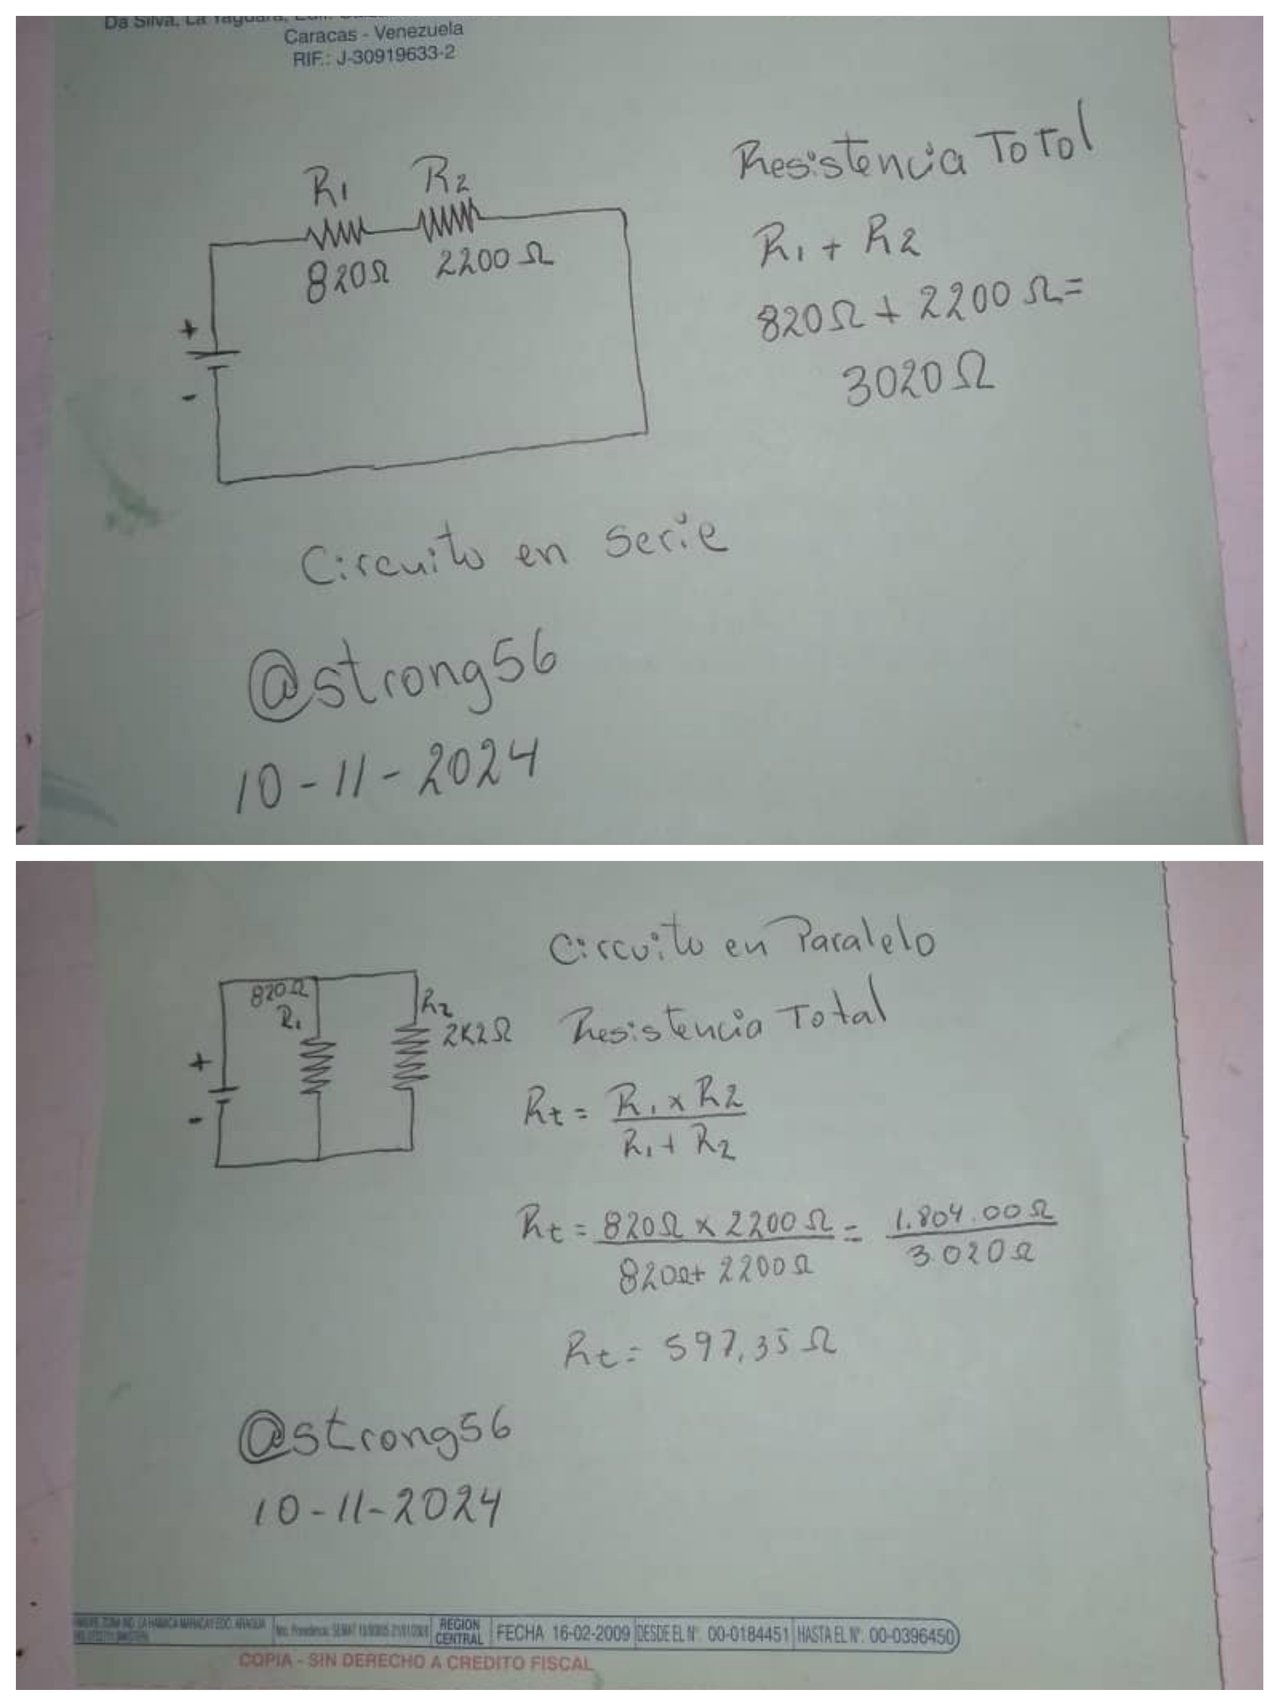 Da Silva, La Yaguara,
Caracas - Venezuela
RIF.: J-30919633-2
R1 R2
820Ω 2200Ω
+
-
Resistencia Total
R1 + R2
820Ω + 2200Ω=
3020Ω
Circuito en Serie
@strong56
10-11-2024
Circuito en Paralelo
820Ω
R1
R2
2K2Ω
+
-
Resistencia Total
Rt = R1 x R2
R1 + R2
Rt = 820Ω x 2200Ω = 1.804.00Ω
820Ω+ 2200Ω 3.020Ω
Rt= 597,35Ω
@strong56
10-11-2024
REGION
CENTRAL
FECHA 16-02-2009 DESDE EL Nº. 00-0184451 HASTA EL Nº. 00-0396450
COPIA - SIN DERECHO A CREDITO FISCAL